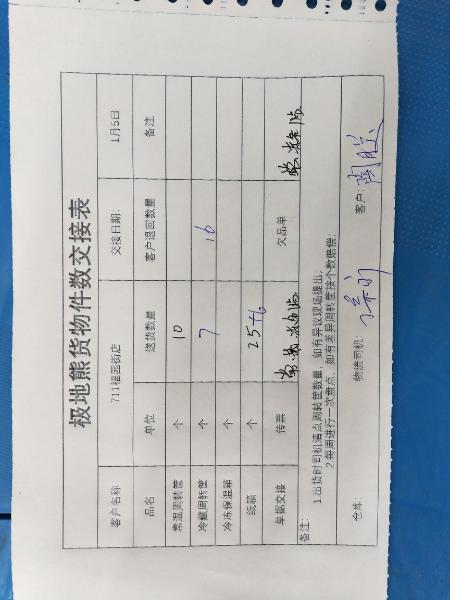 极地熊货物件数交接表
客户名称 711福园街店 交接日期: 1月5日
品名 单位 送货数量 客户退回数量 备注
常温周转筐 个 10
冷藏周转筐 个 7 16
冷冻保温箱 个
纸箱 个 25+6
单据交接 传票 欠品单
备注:
1.出货时司机清点周转筐数量，如有异议现场提出;
2.每周进行一次盘点，如有差异周转筐按个数赔偿;
仓库: 物流司机: 客户: